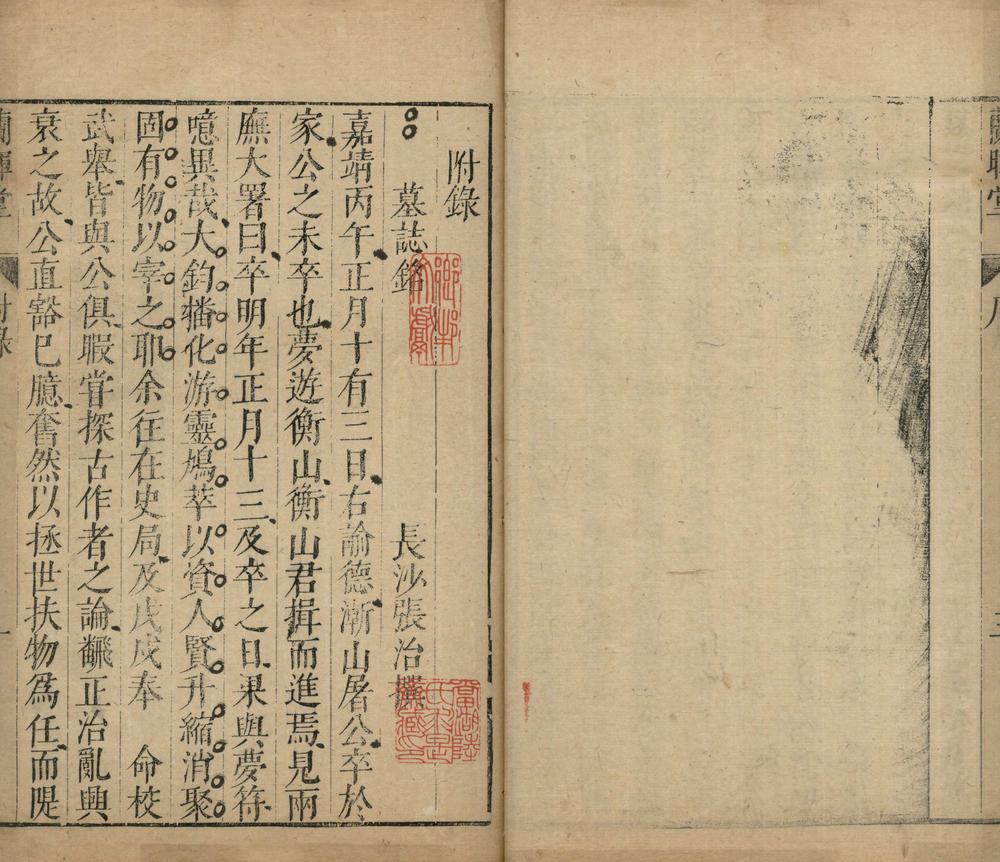 附錄
墓誌銘　長沙張治撰
嘉靖丙午正月十有三日右諭德漸山屠公卒於
家公之未卒也夢遊衡山衡山君揖而進焉見兩
廡大署曰卒明年正月十三及卒之日果與夢符
噫異哉大鈞播化游靈鳩萃以資人賢升縮消聚
固有物以宰之耶余往在史局及戊戌奉　命校
武舉皆與公俱暇嘗探古作者之論觀正治亂興
衰之故公直豁巳臆奮然以拯世扶物爲任而隄
蘭暉堂　附錄　一